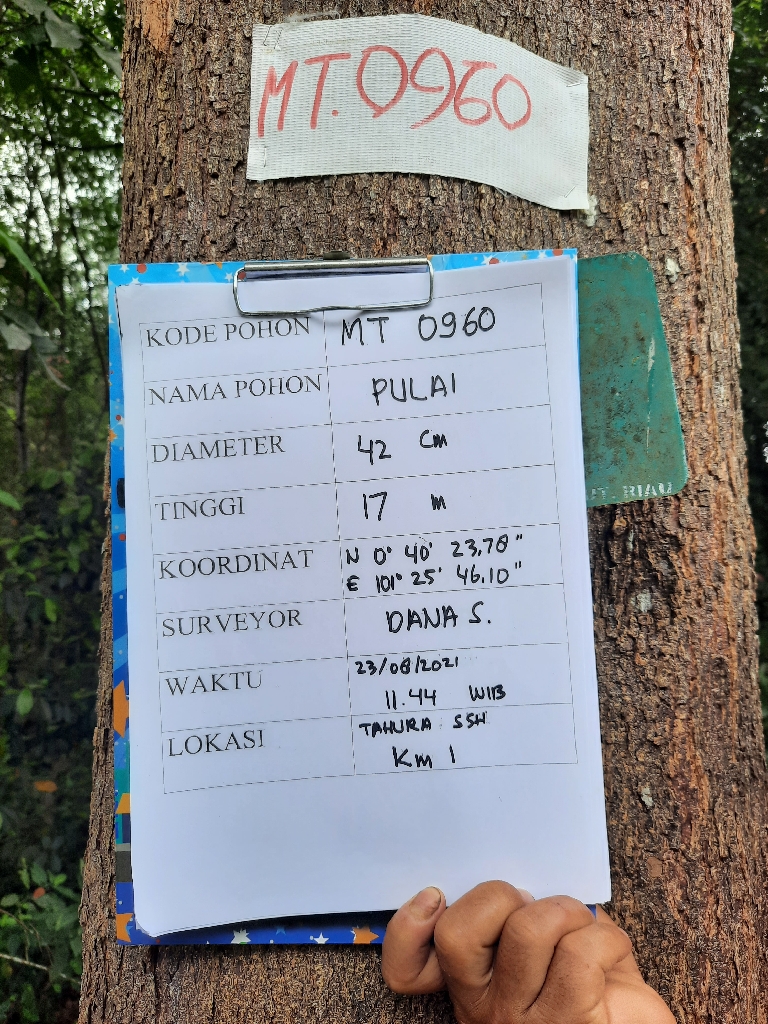 MT.0960
KODE POHON MT 0960
NAMA POHON PULAI
DIAMETER 42 Cm
TINGGI 17 m
KOORDINAT N 0° 40' 23.78"
E 101° 25' 46.10"
SURVEYOR DANA S.
WAKTU 23/08/2021
11.44 WIB
LOKASI TAHURA SSH
Km 1
PT. RIAU